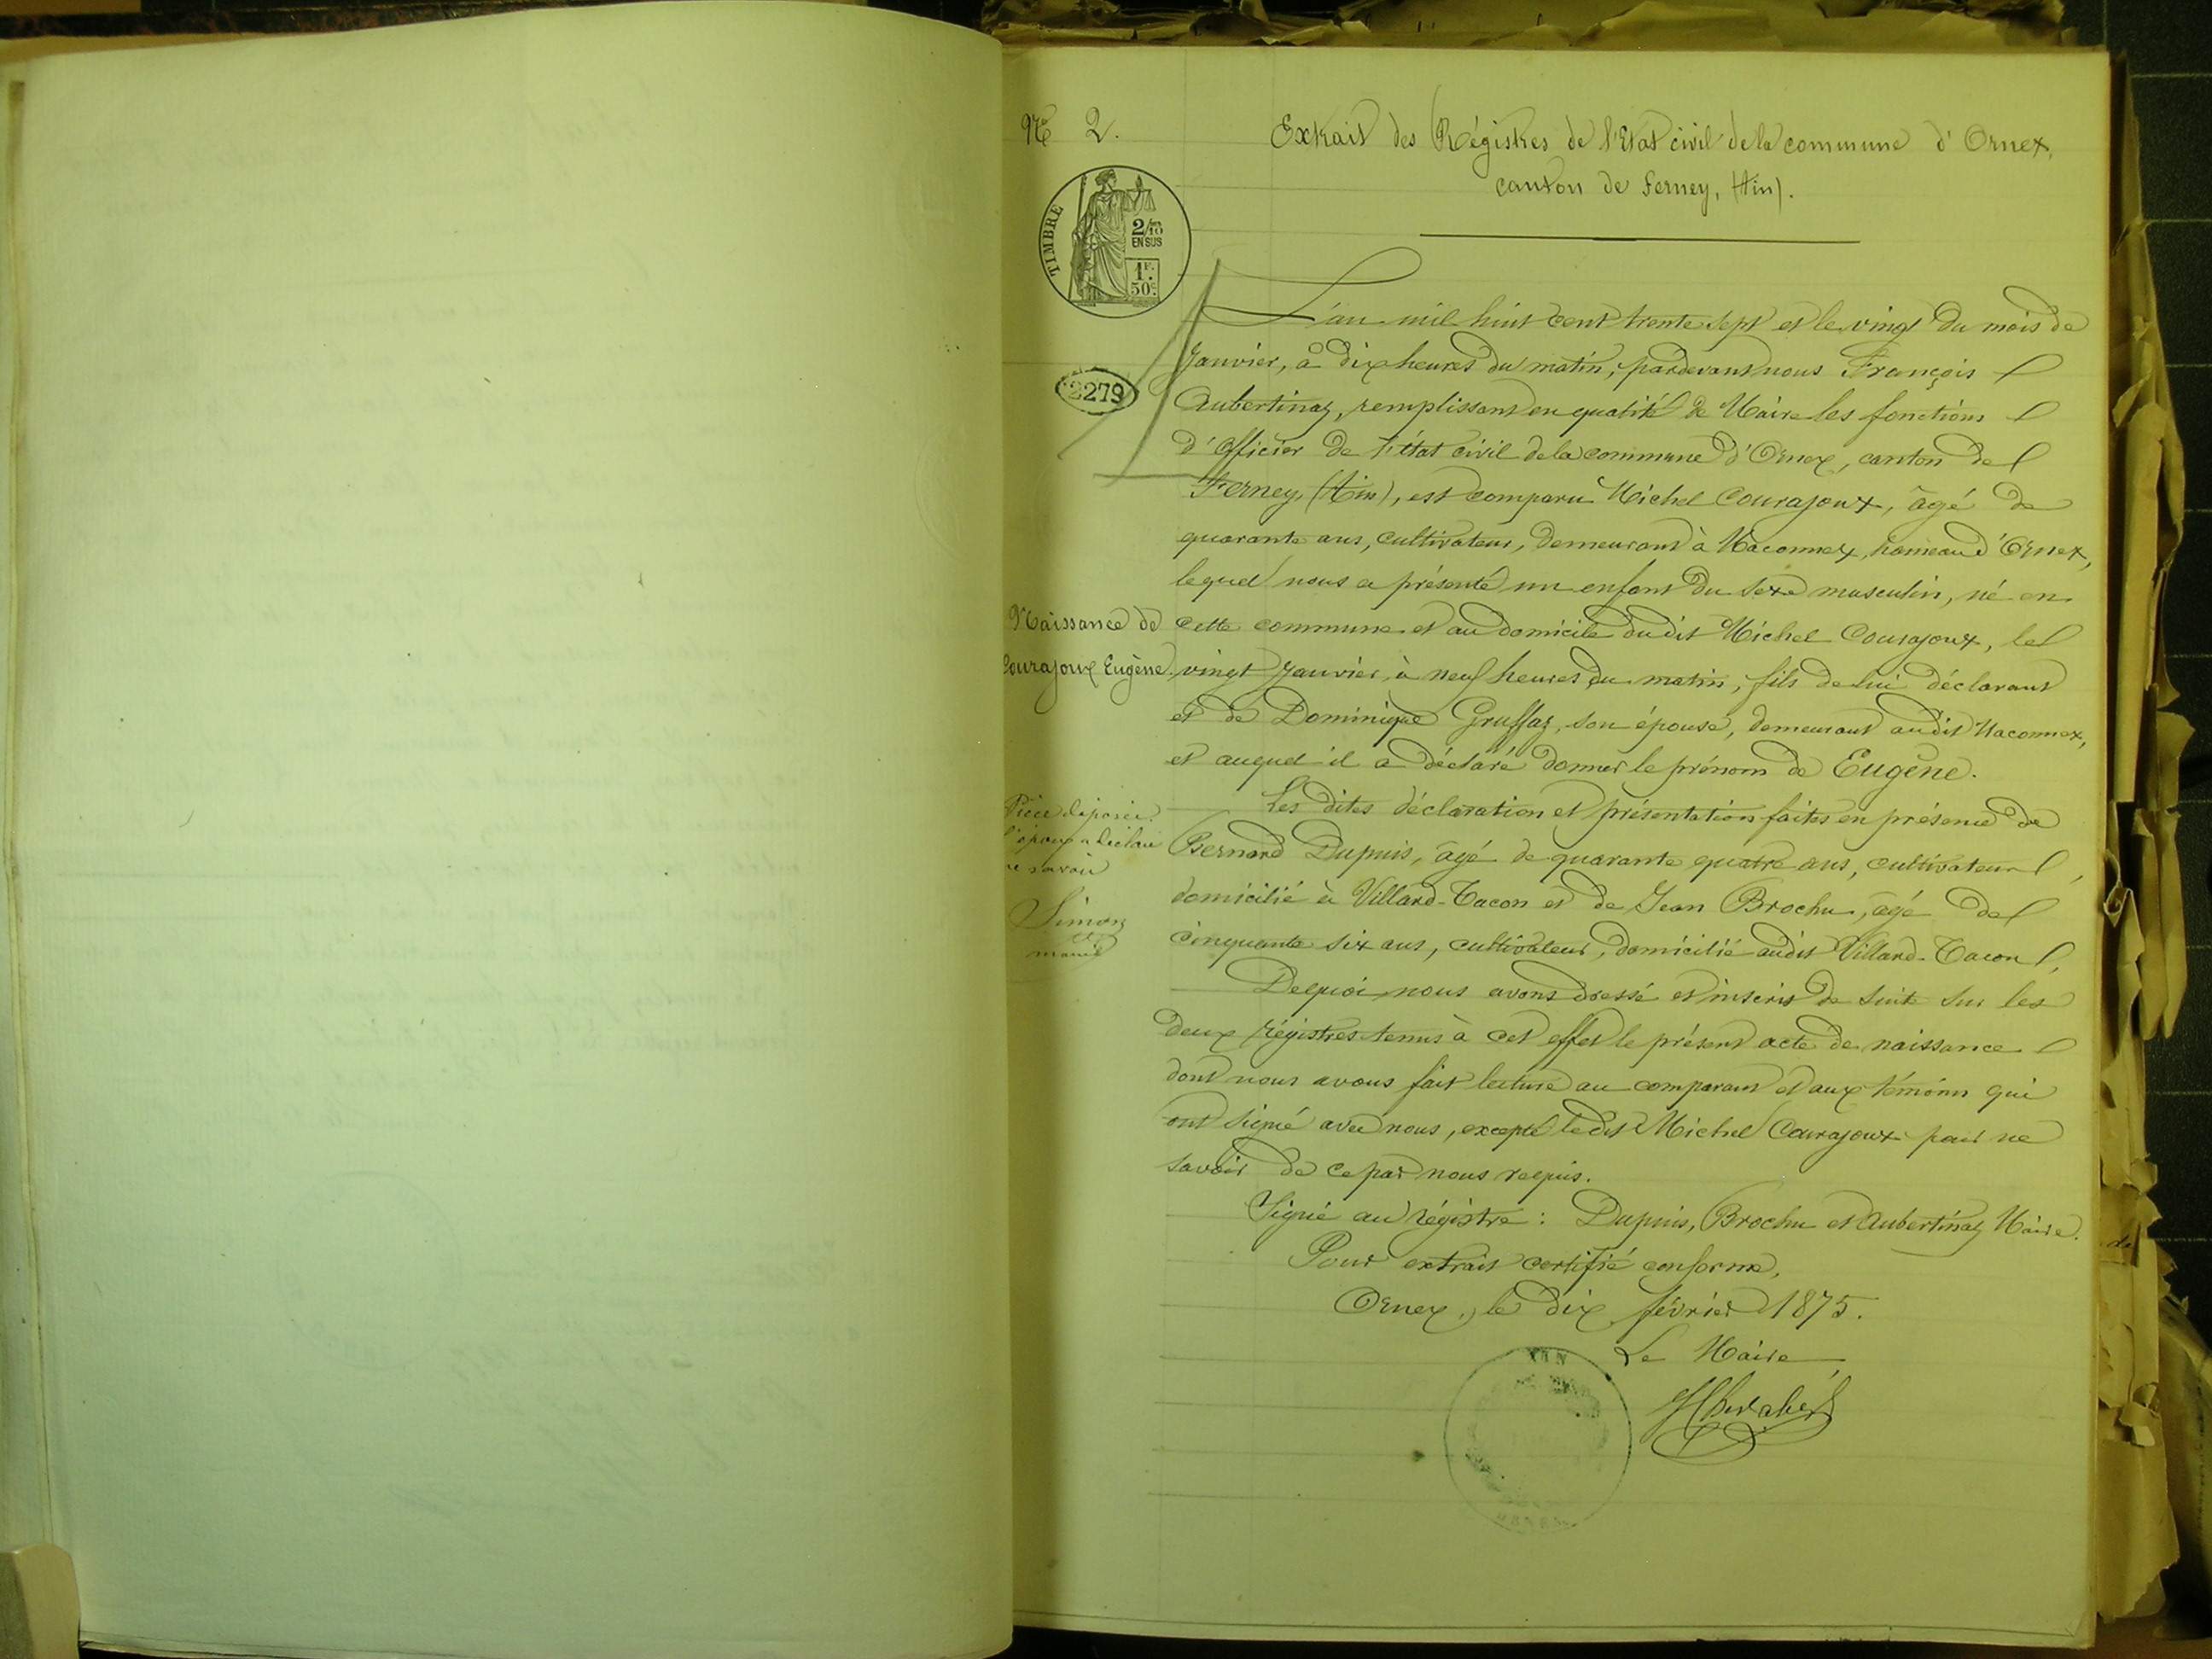 No 2.
Extrait des Régistres de l'Etat civil de la commune d'Ornex,
canton de Ferney, (Ain).
TIMBRE
2/10
EN SUS
1F.
50c.
L'an mil huit cent trente sept et le vingt du mois de
Janvier, à dix heures du matin, pardevant nous François
2279
Aubertinaz, remplissant en qualité de Maire les fonctions
d'officier de l'état civil de la commune d'Ornex, canton de
Ferney, (Ain), est comparu Michel Courajoux, âgé de
quarante ans, cultivateur, demeurant à Maconnex, hameau d'Ornex,
lequel nous a présenté un enfant du sexe masculin, né en
Naissance de
Courajoux Eugène.
cette commune et au domicile du dit Michel Courajoux, le
vingt Janvier, à neuf heures du matin, fils de lui déclarant
et de Dominique Gruffaz, son épouse, demeurant audit Maconnex,
et auquel il a déclaré donner le prénom de Eugène.
Pièce déposée.
l'époux a déclaré
ne savoir
Simon
Les dites déclaration et présentation faites en présence de
Bernard Dupuis, âgé de quarante quatre ans, cultivateur,
domicilié à Villard-Tacon et de Jean Brochu, âgé de
cinquante six ans, cultivateur, domicilié audit Villard-Tacon,
Dequoi nous avons dressé et inscrit de suite sur les
deux régistres tenus à cet effet le présent acte de naissance
dont nous avons fait lecture au comparant et aux témoins qui
ont signé avec nous, excepté le dit Michel Courajoux pour ne
savoir de ce par nous requis.
Signé au régistre : Dupuis, Brochu et Aubertinaz Maire.
Pour extrait certifié conforme,
Ornex, le dix février 1875.
Le Maire,
AIN